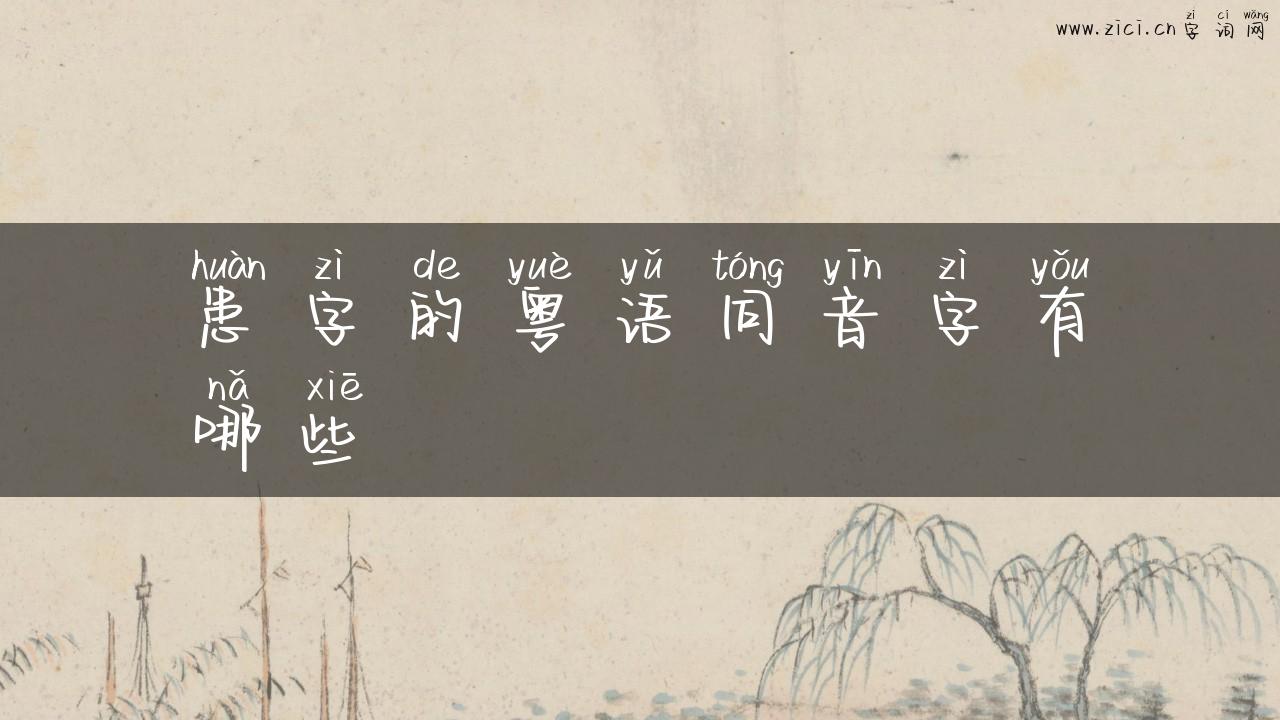 zì cí wǎng
www.zici.cn 字 词 网
huàn zì de yuè yǔ tóng yīn zì yǒu
患 字 的 粤 语 同 音 字 有
nǎ xiē
哪 些